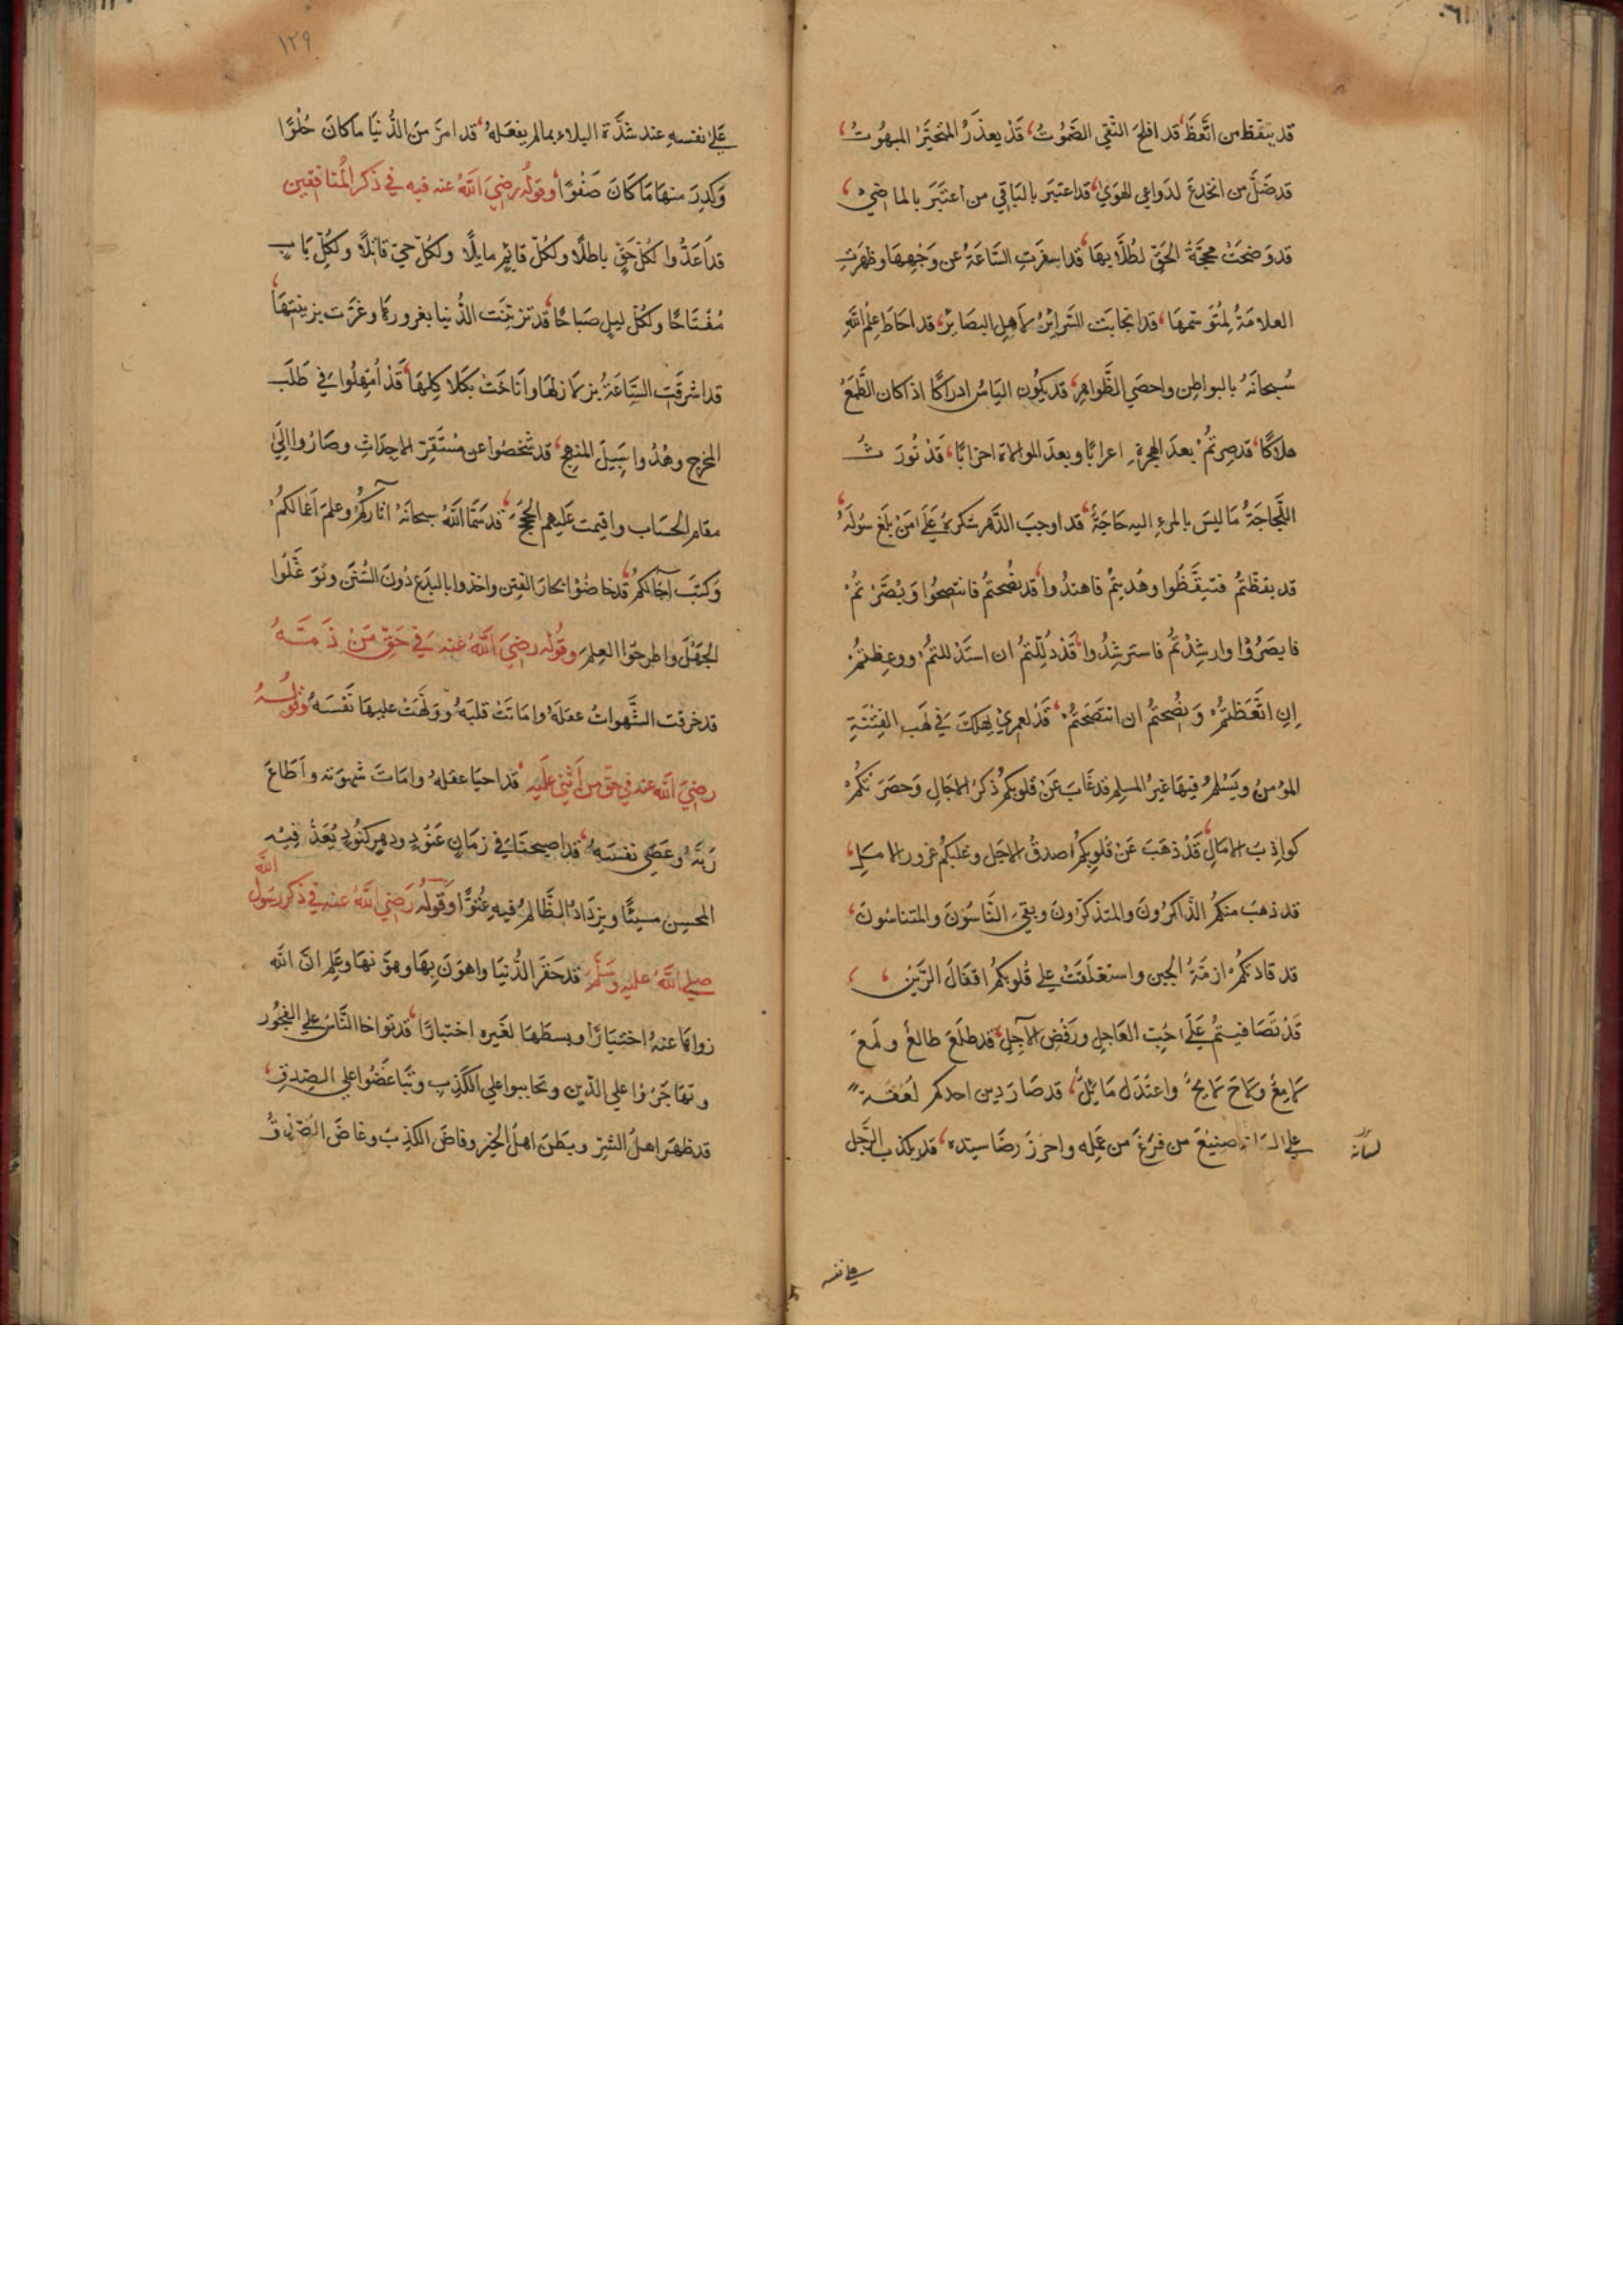 قد تيقظ من اتَّعَظَ قد افلحَ التَّقِي الصَّمُوتُ قَدْ يعذَرُ المتحَيّرُ المبهُوتُ
قد ضَلَّ من انخدعَ لدَواعي الهَوَى قد اعتبَرَ بالبَاقِي من اعتَبَرَ بالماضِي
قد وَضحَتْ محجَّةُ الحَقّ لطُلَّابِهَا قد اسفرَتِ السَّاعَةُ عن وَجْهِهَا وظهَرَتِ
العلامَةُ لِمتُوَسّمِهَا قد انجابَت السَّرايرُ لاَهلِ البصَايرِ قد احَاطَ عِلمُ اللهِ
سُبحانَهُ بالبواطِنِ واحصَي الظَّواهِرَ قد يَكُون اليَاسُ ادراكًا اذا كان الطَّمَعُ
هلاكًا قد صِرتُمْ بعدَ الهجرةِ اعرابًا وبعدَ الموالاة احزابًا قَدْ تُورَثُ
اللَّجاجَةُ مَا ليسَ بالمرءِ اليهِ حَاجَةٌ قد اوجبَ الدَّهر شكرَهُ عَلَى مَنْ بلغَ سُولَهُ
قد يقظْتُم فتيقَّظُوا وهُديتُم فاهتدُوا قد نُصِحتُم فانتصِحُوا وَبُصّرْتمُ
فابصَرُوْا وارشِدْتُم فاسترشِدُوا قَدْ دُلِّلتُم ان استَدْللتمُ ووعِظتُم
اِنِ اتَّعَظتُم وَنُصِحتُم ان انتَصَحَتُم قَدْ لعمرِيْ يَهلكَ فِي لَهَبِ الفِتْنَةِ
المؤمنُ ويَسْلمُ فيهَا غيرُ المسلِم قد غَابَ عَنْ قلوبِكُم ذكرُ الاٰجَالِ وَحضَرَتكُمْ
كواذِبُ الامَالِ قَدْ ذهَبَ عَنْ قلوبِكُم صدقُ الاجَل وغلبَكُم غرور الامَلِ
قد ذهبَ منكمُ الذَّاكرُونَ والمتذكرُونَ وبقيَ النَّاسُوْنَ والمتناسُونَ
قد قادتكُم ازمّةُ الحين واستغلَقَتْ علي قُلوبكُم اقفَالُ الرَّيْنِ
قَدْ تَصَافيتُم عَلَى حُبّ العَاجِلِ ورَفْضِ الآجِلِ قد طلَعَ طالعٌ ولَمَعَ
لامِعٌ ولاحَ لايحٌ واعتَدَل مَائلٌ قد صَارَ دين احدكم لُعْقَةً
علي لسانه صنِيْعَ من فرَغَ من عَمَله واحرَزَ رضَا سيّده قد يكذب الرَّجل
لسانه
علي نفسه
١٢٩
عَلَى نفسهِ عند شدَّة البلاءِ بما لم يفعَلهُ قد امرّ مِنَ الدُّنيَا مَا كانَ حُلْوًا
وَكدِرَ منهَا مَا كَانَ صَفْوًا وقولُه رضِيَ اللهُ عنه فيه في ذكر المُنافقين
قد اَعَدُّوا لكُلّ حَقٍّ باطلًا ولكُلّ قائِمٍ مايلًا ولكُلّ حيّ قاتلًا ولكُلّ بَابٍ
مُفْتَاحًا ولكُلّ ليلٍ صبَاحًا قد تزيّنَت الدُّنيا بغرورهَا وغرَّت بزينتِهَا
قد اشرفَتِ السَّاعَةُ بزلازلهَا واَنَاخَتْ بكَلاكِلِهَا قَدْ اُمْهِلُوا في طَلَبِ
المخرجِ وهُدُوا سَبِيلَ المنهجِ قد شَخصُوا عن مُسْتَقرّ الاجداثِ وصَارُوا اِلَيٰ
مقام الحسَاب واقيمت عَليهم الحُجَج قد سَمَّا اللهُ سبحانَهُ اثارَكُم وعلمَ اَعمَالكُمْ
وَكتَبَ اٰجَالكُم قد خاضُوْا بحارَ الفِتنِ واخذوا بالبدَع دُونَ السُّنَنِ وتوَغَّلُوا
الجَهْلَ واطرحُوا العِلمَ وقُوله رضِيَ اللهُ عنه فِي حَقّ مَنْ ذَمَّهُ
قد خرقَت الشَّهواتُ عقلَهُ وامَاتَتْ قلبَهُ وَوَلَّهَتْ عليهَا نَفْسَهُ وقولُهُ
رضِيَ اللهُ عنه في حقّ من اَثْنَى عَلَيْهِ قد احيَا عقلهُ وامَاتَ شهوَته واَطَاعَ
رَبَّهُ وعَصَى نفسَهُ قد اصبحنَا في زمَانٍ عَنُودٍ ودهرٍ كنُودٍ يُعَدّ فِيهِ
المحسِن مسيئًا ويزدَادُ الظَّالمُ فيهِ عُتُوًّا وقَولُهُ رَضِيَ اللهُ عنهُ في ذكر رسَول اللهِ
صلي اللهُ عليه وسَلَّم قد حَقَرَ الدُّنيَا واهوَنَ بِهَا وهوّنهَا وعَلِم انّ الله
زواهَا عنهُ اختيَارًا وبسطَهَا لغَيرِهِ اختبارًا قد تواخا النَّاسُ علي الفجُور
وتهَاجَرُوْا علي الدّين وتحاببوا علي الكَذِبِ وتَبَاغَضُوا علي الصِدقِ
قد ظهَرَ اهلُ الشرّ وبطَنَ اهلُ الخيرِ وفاضَ الكذِبُ وغاضَ الصّدقُ